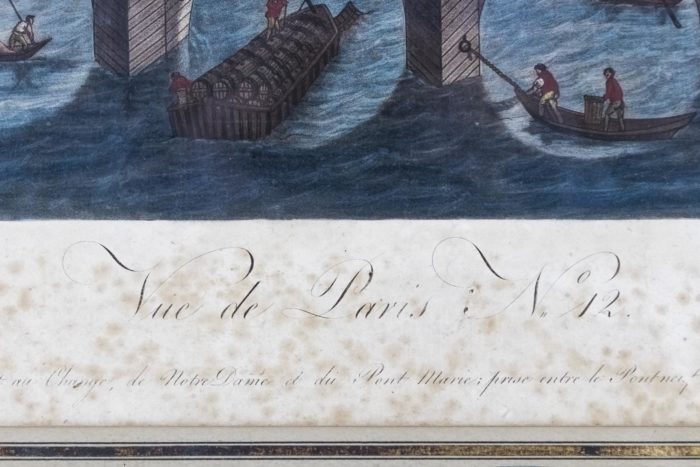 Vue de Paris : N.º 12.
au Change, de Notre Dame et du Pont Marie; prise entre le Pontneuf